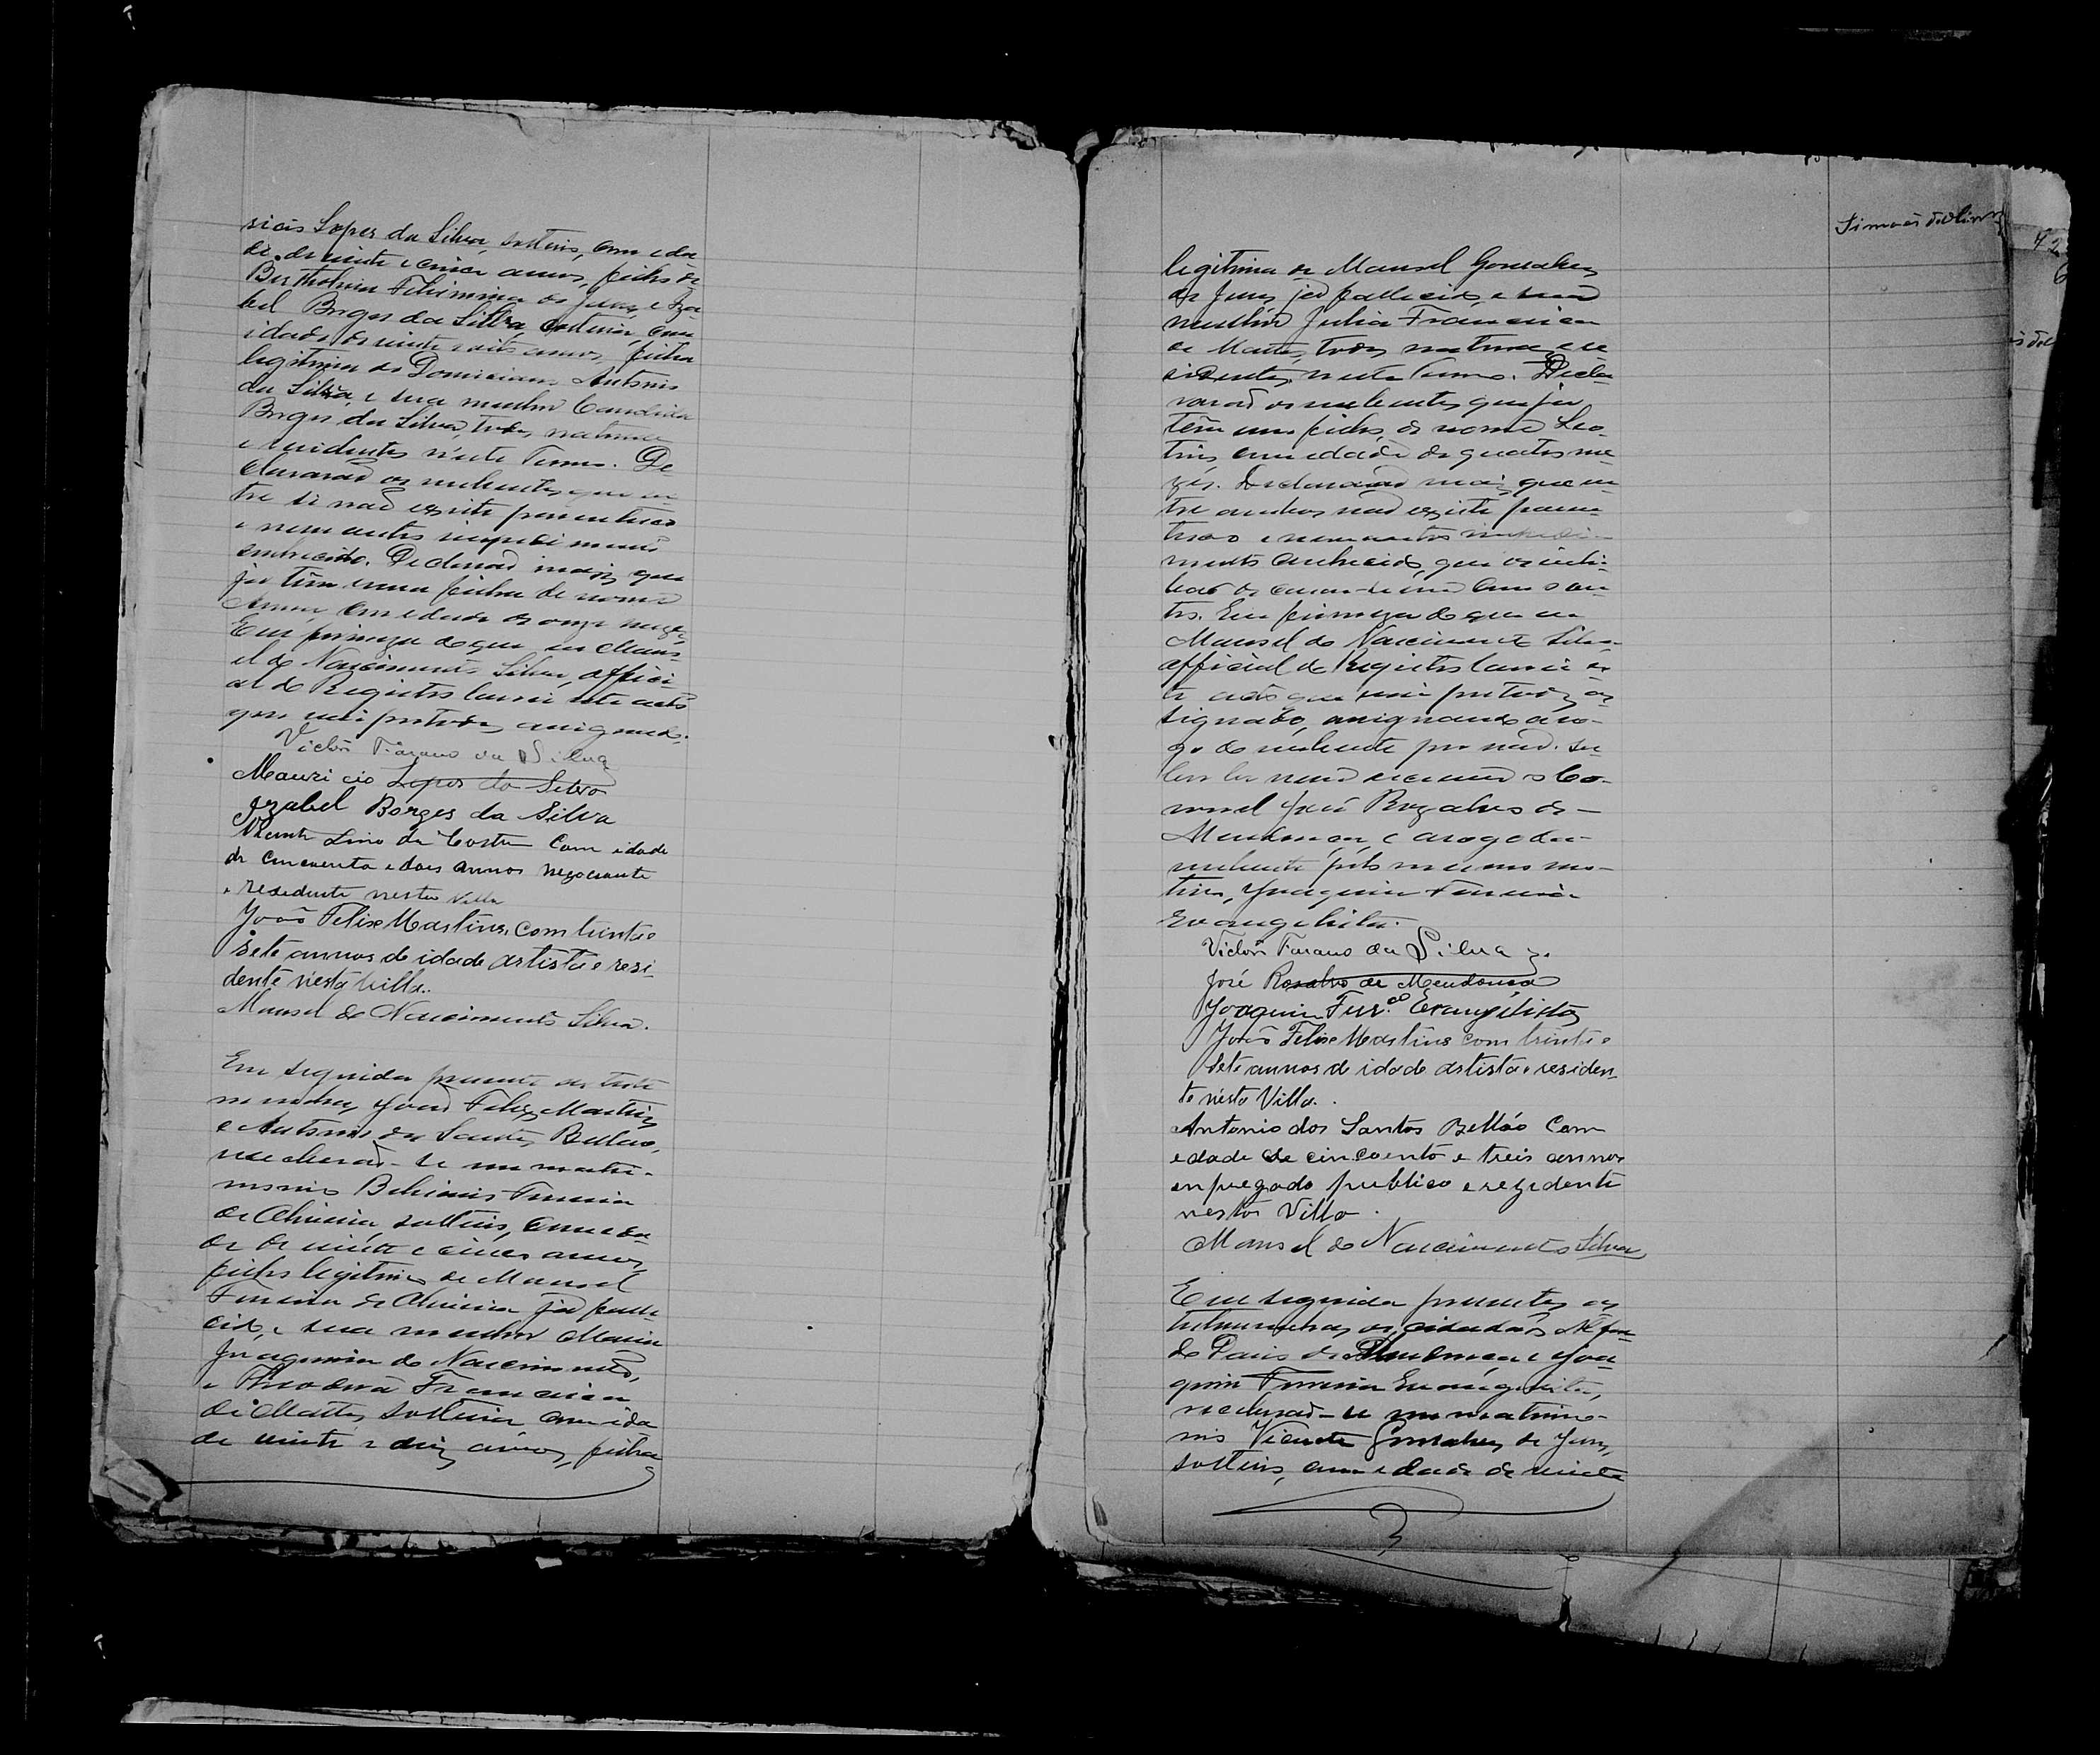 sicio Lopes da Silva, solteiro, com eda
de de vinte e cinco annos, filho de
Bertholina Felismina de Jesus, e Iza
bel Borges da Silva, solteira, com
idade de vinte e oito annos, filha
legitima de Domiciano Antonio
da Silva, e sua mulher Candida
Borges da Silva, todos naturaes
e residentes n'este Termo. De
clararão os nubentes que en
tre si não existe parentesco
e nem outro impedimento
conhecido. Declarão mais que
já têm uma filha de nome
Anna, com edade de onze mezes
Em firmeza do que eu Mano
el do Nascimento Silva, offici
al do Registro lavrei este acto
que vai por todos assignado.
Victor Farano da Silva
Mauricio Lopes da Silva
Izabel Borges da Silva
Vicente Lino da Costa com idade
de cincoenta e dois annos negociante
e residente nesta Villa
João Felix Martins, com trinta e
sete annos de idade artista e resi
dente nesta villa..
Manoel do Nascimento Silva.
Em seguida presente as teste
munhas, João Felix Martins
e Antonio dos Santos Bellão,
receberão-se em matri-
monio Ferreira
de Oliveira solteiro, com eda
de de vinte e cinco annos,
filho legitimo de Manoel
Ferreira de Oliveira já falle
cido, e sua mulher Maria
Joaquina do Nascimento,
e Theodora Francisca
de Mattos, solteira com ida
de de vinte e dois annos, filha
Simões de Oliveira
legitima de Manoel Gonsalves
de Jesus, já fallecido, e sua
mulher Julia Francisca
de Mattos, todos naturaes e re
sidentes neste Termo. Decla
rarão os nubentes que já
têm um filho, de nome Leo
tino, com edade de quatro me
zes. Declararão mais, que en
tre ambos não existe paren
tesco e nem outro impedi
mento conhecido, que os inhi
bão de casar-se um com o ou
tro. Em firmeza do que eu
Manoel do Nascimento Silva
official do Registro lavrei es
te acto que vai por todos as
signado, assignando a ro-
go do nubente por não sa
ber ler nem escrever o Co-
ronel José Rozalvo de
Mendonça, e a rogo da
nubente pelo mesmo mo-
tivo, Joaquim Ferreira
Evangelista.
Victor Farano da Silva
José Rosalvo de Mendonça
Joaquim Ferr.ª Evangelista
João Felix Martins com trinta e
sete annos de idade artista e residen
te nesta Villa..
Antonio dos Santos Bellão com
edade de cincoenta e treis annos
enpregado publico e rezidente
nesta Villa.
Manoel do Nascimento Silva
Em seguida presentes as
testemunhas, os cidadãos
de Paiva de e Joa
quim Ferreira Evangelista,
receberão-se em matrimo-
nio Vicente Gonsalves de Jesus,
solteiro, com edade de vinte